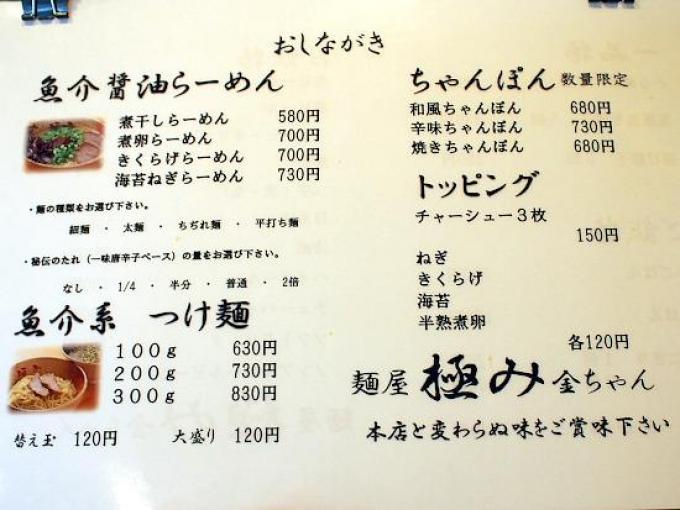 おしながき
魚介醤油らーめん
煮干しらーめん 580円
煮卵らーめん 700円
きくらげらーめん 700円
海苔ねぎらーめん 730円
・麺の種類をお選び下さい。
細麺 ・ 太麺 ・ ちぢれ麺 ・ 平打ち麺
・秘伝のたれ（一味唐辛子ベース）の量をお選び下さい。
なし ・ 1/4 ・ 半分 ・ 普通 ・ 2倍
魚介系 つけ麺
100g 630円
200g 730円
300g 830円
替え玉 120円 大盛り 120円
ちゃんぽん 数量限定
和風ちゃんぽん 680円
辛味ちゃんぽん 730円
焼きちゃんぽん 680円
トッピング
チャーシュー3枚
150円
ねぎ
きくらげ
海苔
半熟煮卵
各120円
麺屋 極み 金ちゃん
本店と変わらぬ味をご賞味下さい